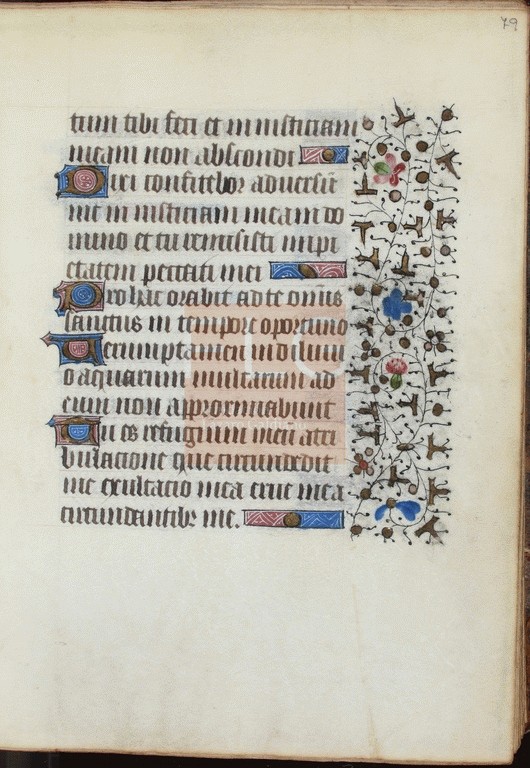 79
tum tibi feci et iniusticiam
meam non abscondi
Dixi confitebor adversū
me iniusticiam meam do
mino et tu remisisti impi
etatem peccati mei
Pro hac orabit ad te omīs
sanctus in tempore oportuno
Verumptamen in diluvi
o aquarum multarum ad
eum non approximabunt
Tu es refugium meū a tri
bulacione que circumdedit
me exultacio mea erue me a
circumdantibꝰ me.